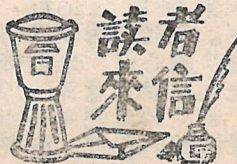 台
讀者
來信